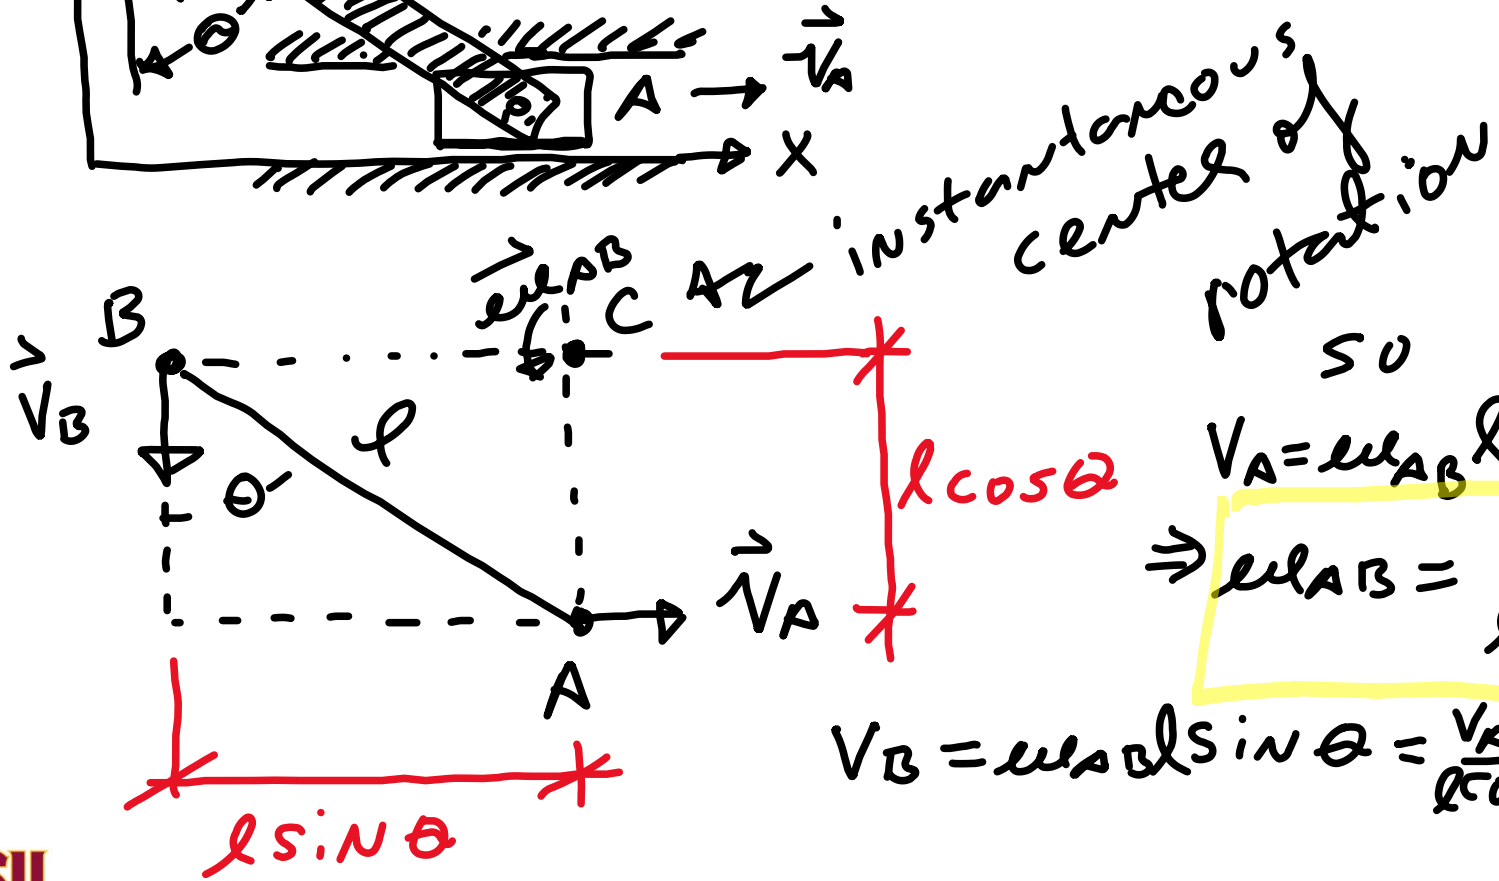 θ
A
→
V_A
X
instantaneous
center of
rotation
ω_AB
B
C
V_B
l
θ
l cos θ
V_A
A
l sin θ
so
V_A = ω_AB l
⇒ ω_AB =
V_B = ω_AB l sin θ = V_A